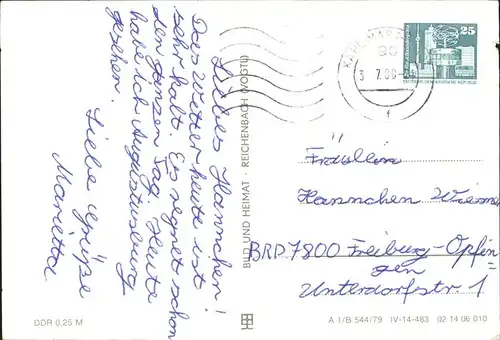 Liebes Hannchen!
Das Wetter heute ist
sehr kalt. Es regnet schon
den ganzen Tag. Heute
habe ich Augustusburg
gesehen.
Liebe Grüße
Marietta
BILD UND HEIMAT · REICHENBACH (VOGTL)
25
3 7.80
Fräulein
Hannchen
BRD 7800 Freiburg-Opfin
gen
Unterdorfstr. 1
DDR 0,25 M
A 1/B 544/79 IV-14-483 02 14 06 010